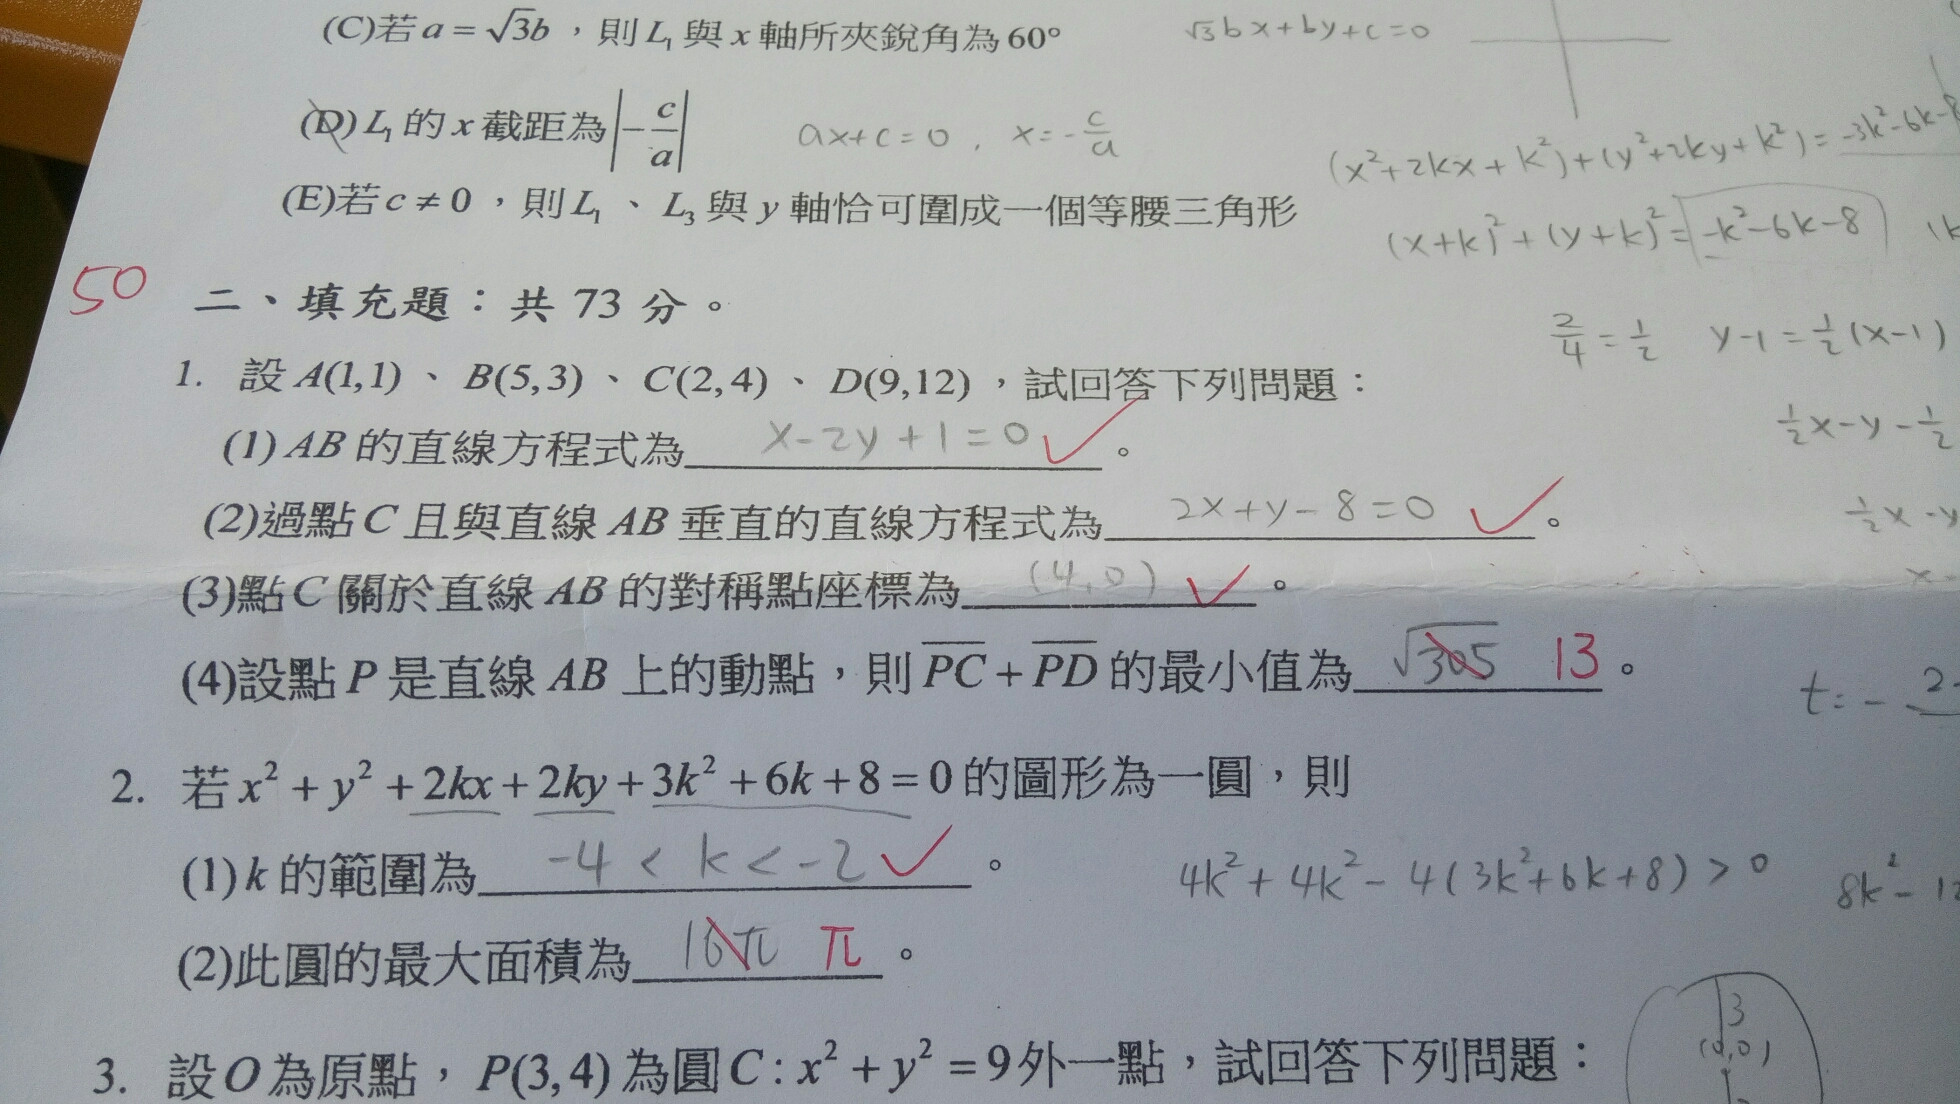 (C)若 a = √3b，則 L₁ 與 x 軸所夾銳角為 60°
√3bx+by+c=0
(D) L₁ 的 x 截距為 |-c/a|
ax+c=0, x=-c/a
(x²+2kx+k²)+(y²+2ky+k²)=-3k²-6k-8
(E)若 c ≠ 0，則 L₁、L₃ 與 y 軸恰可圍成一個等腰三角形
(x+k)²+(y+k)²=-k²-6k-8
50
二、填充題：共 73 分。
2/4=1/2 y-1=1/2(x-1)
1. 設 A(1,1)、B(5,3)、C(2,4)、D(9,12)，試回答下列問題：
(1) AB 的直線方程式為 x-2y+1=0 ✓。
1/2x-y-1/2
(2)過點 C 且與直線 AB 垂直的直線方程式為 2x+y-8=0 ✓。
1/2x-y
(3)點 C 關於直線 AB 的對稱點座標為 (4,0) ✓。
x-
(4)設點 P 是直線 AB 上的動點，則 PC + PD 的最小值為 √305 13。
t=-
2. 若 x² + y² + 2kx + 2ky + 3k² + 6k + 8 = 0 的圖形為一圓，則
(1) k 的範圍為 -4<k<-2 ✓。
4k²+4k²-4(3k²+6k+8)>0 8k²-12
(2)此圓的最大面積為 16π π。
3
(0,0)
3. 設 O 為原點，P(3,4) 為圓 C : x² + y² = 9 外一點，試回答下列問題：